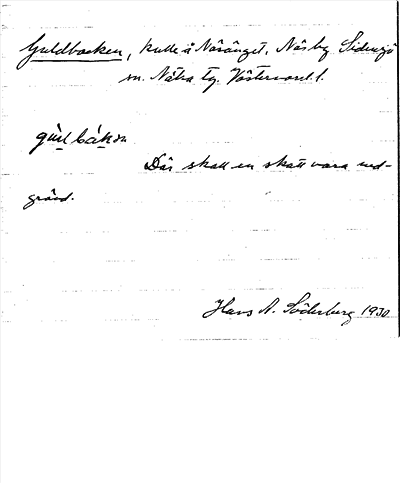 Guldbacken, kulle å Näsänget, Näs by Sidensjö
sn. Nätra tg. Västernorrl. l.
gu̇l bȧkən
Där skall en skatt vara ned-
grävd.
Hans A. Söderberg 1930